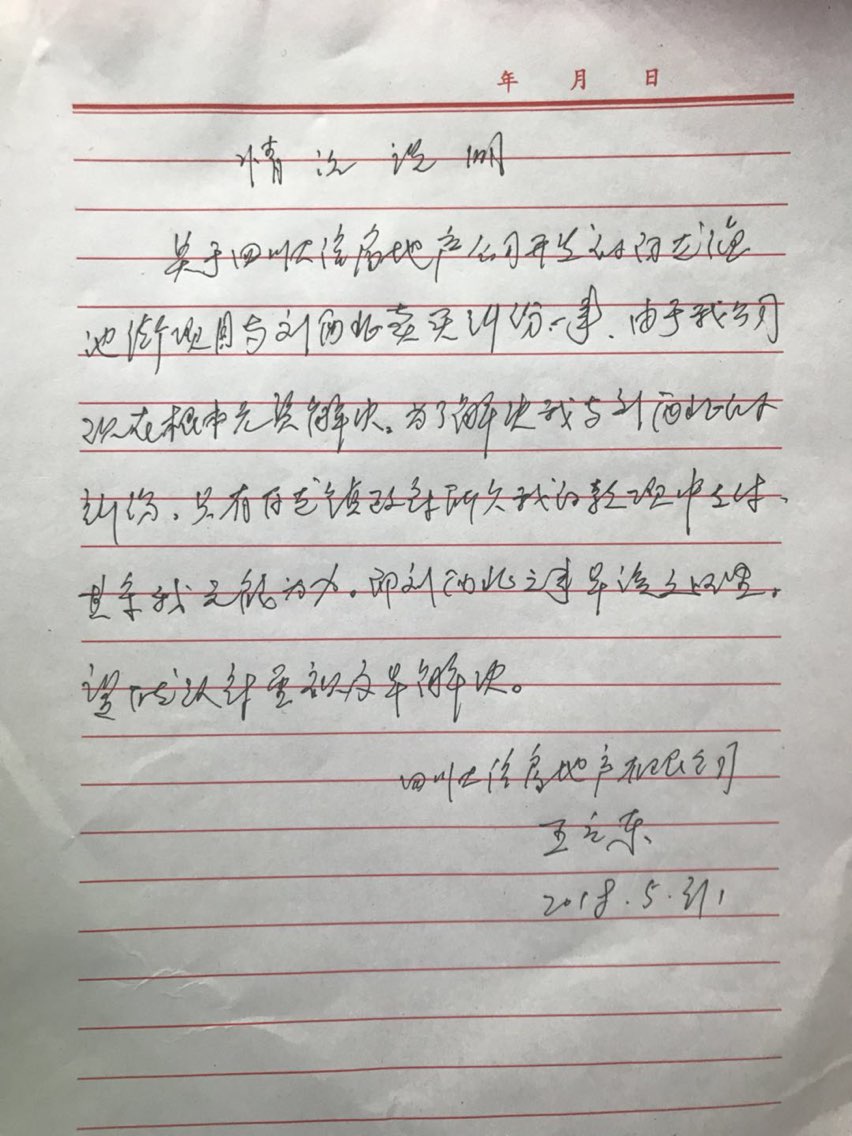 年 月 日
情况说明
关于四川大洋房地产公司开发
池街项目与刘西北卖买纠纷一事、由于我公司
现在根本无关解决。为了解决我与刘西北的
纠纷、只有 镇政府所欠我的款项中支付、
其余我无能为力。即刘西北之事早该处理。
望 政府重视及早解决。
四川大洋房地产有限公司
王立东
2018.5.31